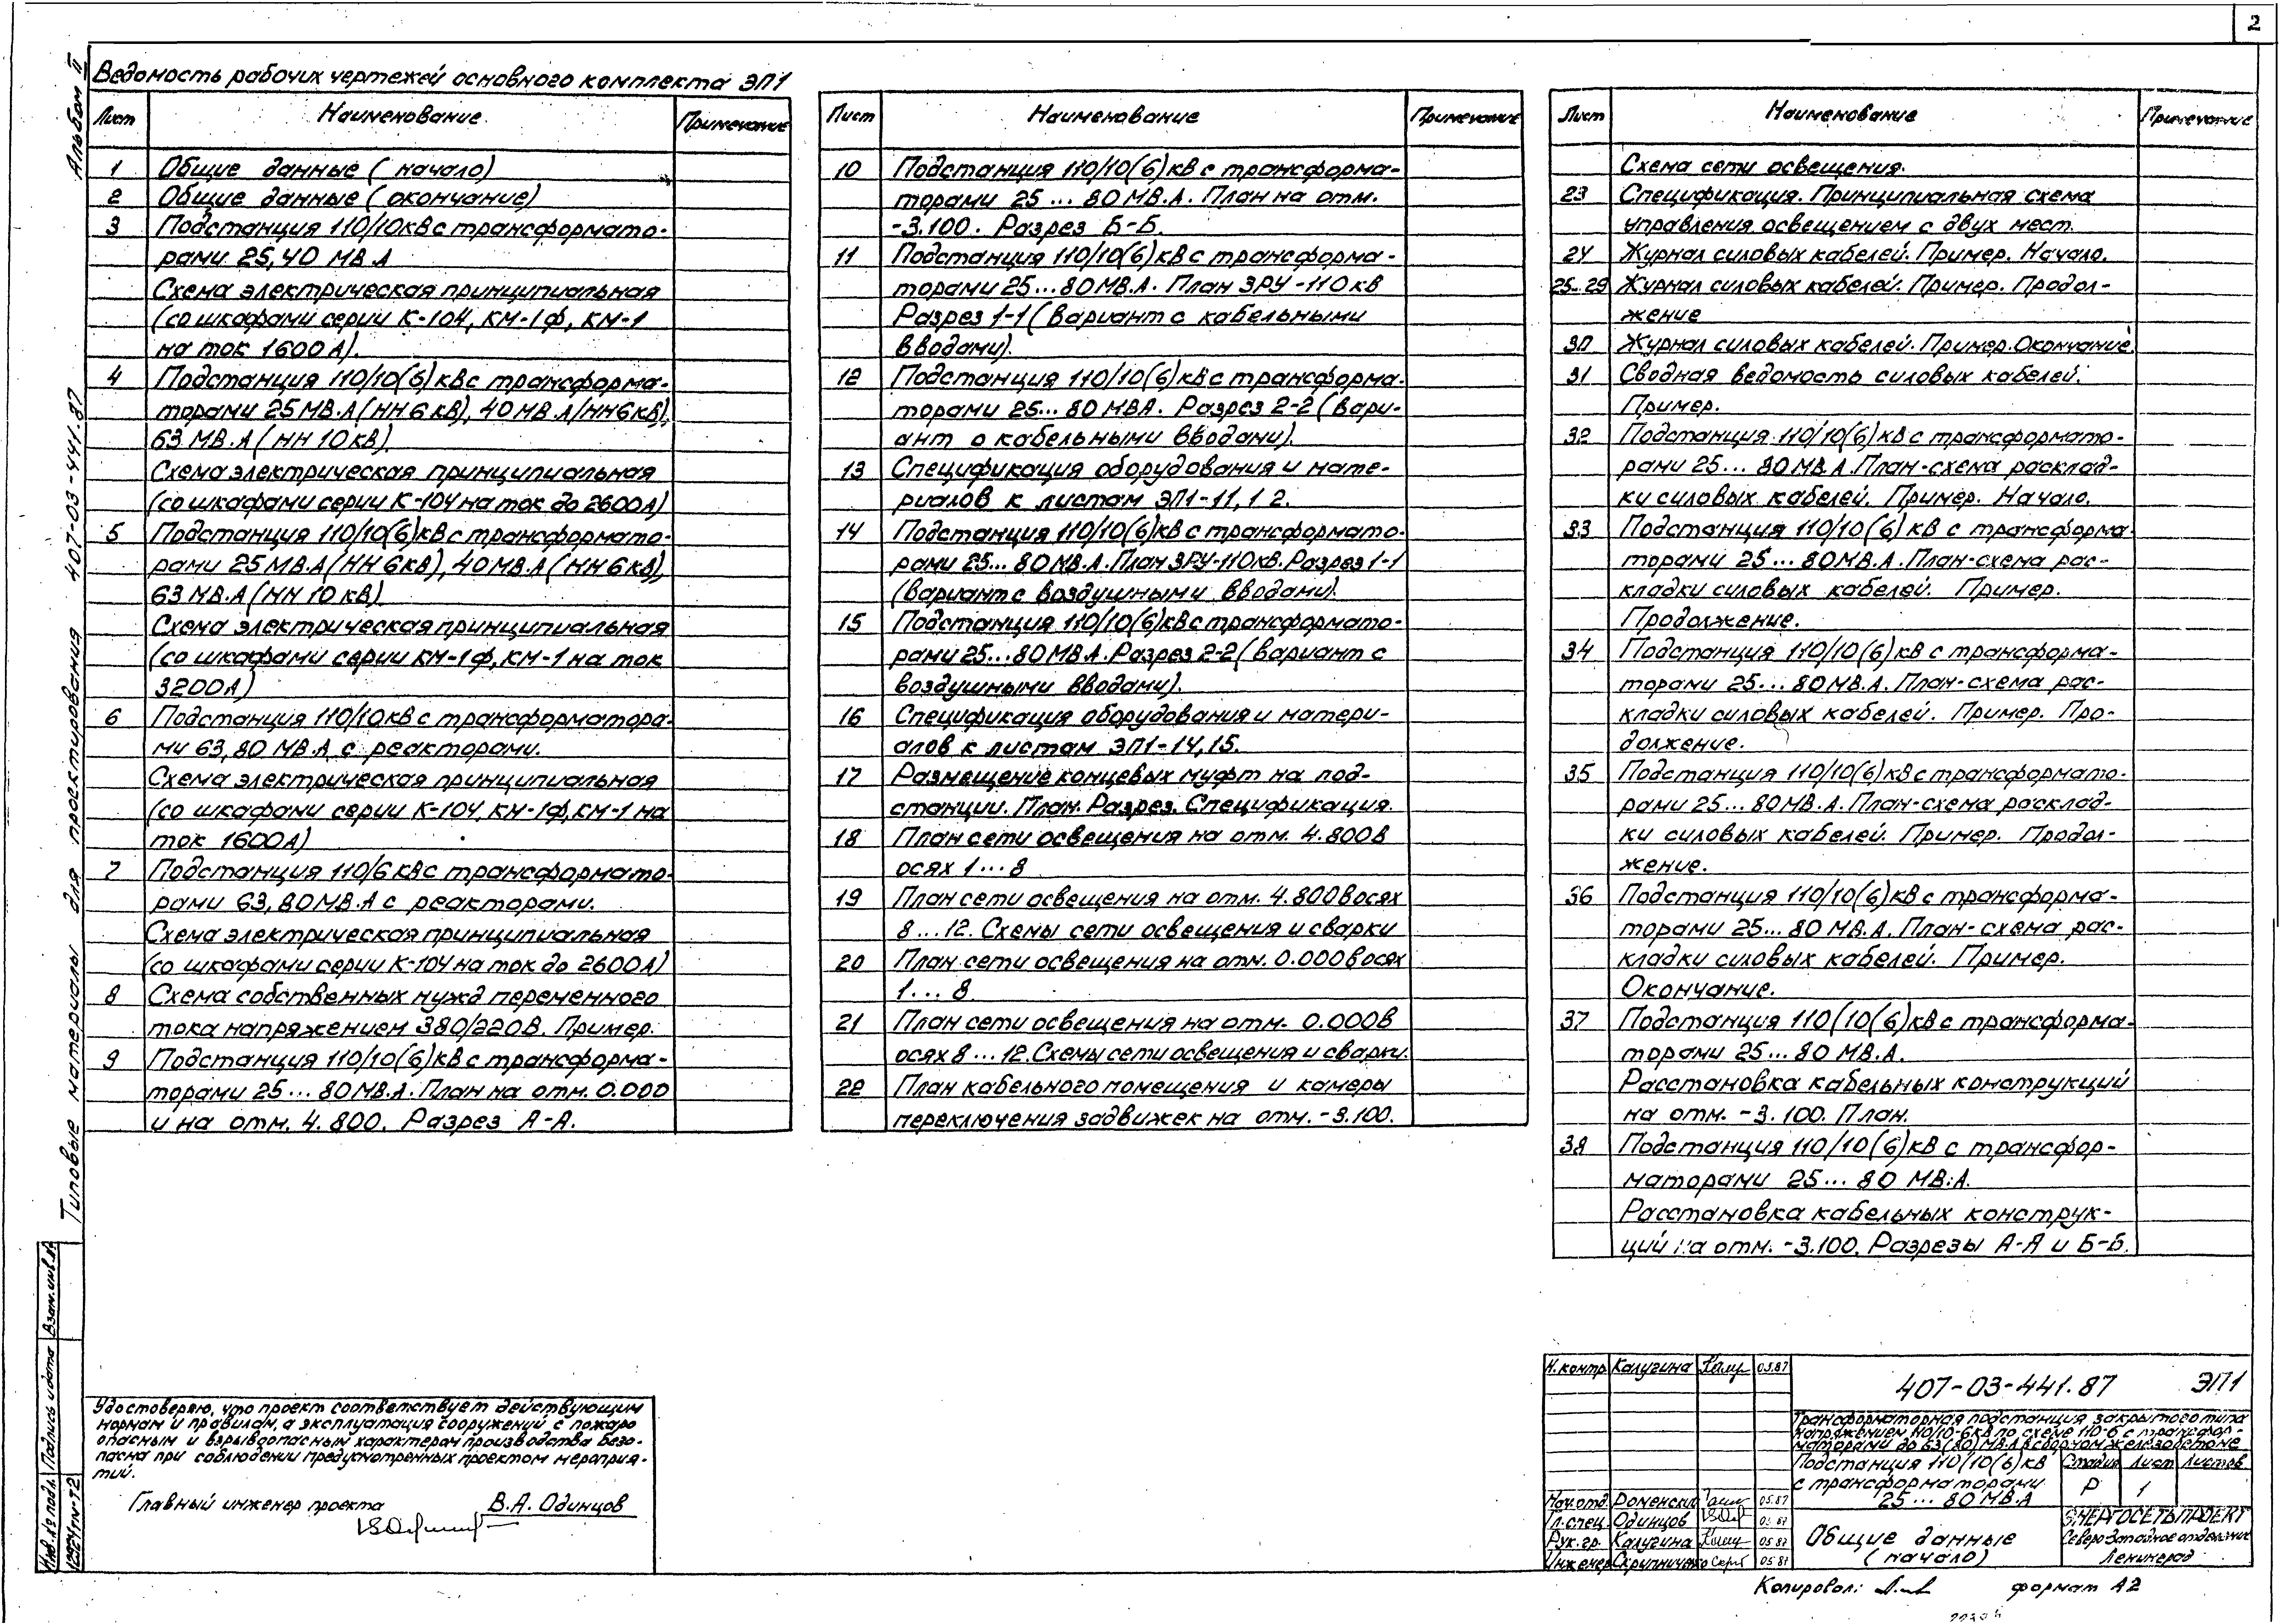 2
Альбом II
Типовые материалы для проектирования 407-03-441.87
Ведомость рабочих чертежей основного комплекта ЭП1
Лист Наименование Примечание
1 Общие данные (начало)
2 Общие данные (окончание)
3 Подстанция 110/10кВ с трансформато-
рами 25,40 МВ.А
Схема электрическая принципиальная
(со шкафами серии К-104, КМ-1ф, КМ-1
на ток 1600А).
4 Подстанция 110/10(6)кВ с трансформа-
торами 25МВ.А(НН6кВ), 40МВ.А(НН6кВ),
63 МВ.А(НН 10кВ).
Схема электрическая принципиальная
(со шкафами серии К-104 на ток до 2600А)
5 Подстанция 110/10(6)кВ с трансформато-
рами 25МВ.А(НН6кВ), 40МВ.А(НН6кВ),
63 МВ.А(НН 10 кВ)
Схема электрическая принципиальная
(со шкафами серии КМ-1ф, КМ-1 на ток
3200А)
6 Подстанция 110/10кВ с трансформатора-
ми 63,80 МВ.А с реакторами.
Схема электрическая принципиальная
(со шкафами серии К-104, КМ-1ф, КМ-1 на
ток 1600А)
7 Подстанция 110/6 кВ с трансформато-
рами 63,80МВ.А с реакторами.
Схема электрическая принципиальная
(со шкафами серии К-104 на ток до 2600А)
8 Схема собственных нужд переменного
тока напряжением 380/220В. Пример.
9 Подстанция 110/10(6)кВ с трансформа-
торами 25...80МВ.А. План на отм. 0.000
и на отм. 4.800. Разрез А-А.
Лист Наименование Примечание
10 Подстанция 110/10(6)кВ с трансформа-
торами 25...80МВ.А. План на отм.
-3.100. Разрез Б-Б.
11 Подстанция 110/10(6)кВ с трансформа-
торами 25...80МВ.А. План ЗРУ-110кВ
Разрез 1-1 (вариант с кабельными
вводами).
12 Подстанция 110/10(6)кВ с трансформа-
торами 25...80 МВА. Разрез 2-2 (вари-
ант с кабельными вводами).
13 Спецификация оборудования и мате-
риалов к листам ЭП1-11, 12.
14 Подстанция 110/10(6)кВ с трансформато-
рами 25...80МВ.А. План ЗРУ-110кВ. Разрез 1-1
(вариант с воздушными вводами).
15 Подстанция 110/10(6)кВ с трансформато-
рами 25...80МВ.А. Разрез 2-2 (вариант с
воздушными вводами).
16 Спецификация оборудования и матери-
алов к листам ЭП1-14,15.
17 Размещение концевых муфт на под-
станции. План. Разрез. Спецификация.
18 План сети освещения на отм. 4.800 в
осях 1...8
19 План сети освещения на отм. 4.800 в осях
8...12. Схемы сети освещения и сварки
20 План сети освещения на отм. 0.000 в осях
1...8
21 План сети освещения на отм. 0.000 в
осях 8...12. Схемы сети освещения и сварки.
22 План кабельного помещения и камеры
переключения задвижек на отм. -3.100.
Лист Наименование Примечание
Схема сети освещения.
23 Спецификация. Принципиальная схема
управления освещением с двух мест.
24 Журнал силовых кабелей. Пример. Начало.
25..29 Журнал силовых кабелей. Пример. Продол-
жение
30 Журнал силовых кабелей. Пример. Окончание.
31 Сводная ведомость силовых кабелей.
Пример.
32 Подстанция 110/10(6)кВ с трансформато-
рами 25...80МВ.А. План-схема расклад-
ки силовых кабелей. Пример. Начало.
33 Подстанция 110/10(6) кВ с трансформа-
торами 25...80МВ.А. План-схема рас-
кладки силовых кабелей. Пример.
Продолжение.
34 Подстанция 110/10(6)кВ с трансформа-
торами 25...80МВ.А. План-схема рас-
кладки силовых кабелей. Пример. Про-
должение.
35 Подстанция 110/10(6)кВ с трансформато-
рами 25...80МВ.А. План-схема расклад-
ки силовых кабелей. Пример. Продол-
жение.
36 Подстанция 110/10(6)кВ с трансформа-
торами 25...80 МВ.А. План-схема рас-
кладки силовых кабелей. Пример.
Окончание.
37 Подстанция 110/10(6)кВ с трансформа-
торами 25...80 МВ.А.
Расстановка кабельных конструкций
на отм. -3.100. План.
38 Подстанция 110/10(6)кВ с трансфор-
маторами 25...80 МВ.А.
Расстановка кабельных конструк-
ций на отм. -3.100. Разрезы А-А и Б-Б.
Удостоверяю, что проект соответствует действующим
нормам и правилам, а эксплуатация сооружений с пожаро
опасным и взрывоопасным характером производства безо-
пасна при соблюдении предусмотренных проектом мероприя-
тий.
Главный инженер проекта В.А. Одинцов
Инв.№ подл. Подпись и дата Взам.инв.№
12924тм-Т2
Н.контр. Калугина 05.87
407-03-441.87 ЭП1
Трансформаторная подстанция закрытого типа
напряжением 110/10-6кВ по схеме 110-6 с трансфор-
маторами до 63(80)МВ.А в сборном железобетоне
Подстанция 110/10(6)кВ
с трансформаторами
25...80 МВ.А
Стадия Лист Листов
Р 1
Нач.отд. Роменский 05.87
Гл.спец. Одинцов 05.87
Рук.гр. Калугина 05.87
Инженер Скрипниченко 05.87
Общие данные
(начало)
ЭНЕРГОСЕТЬПРОЕКТ
Северо-Западное отделение
Ленинград
Копировал: формат А2